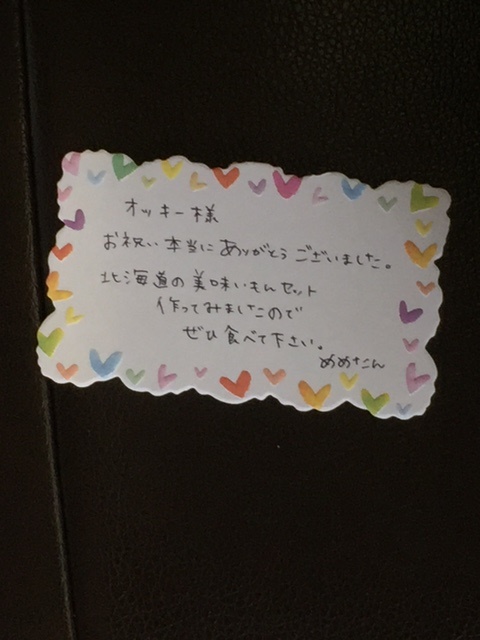 オッキー様
お祝い本当にありがとうございました。
北海道の美味いもんセット
作ってみましたので
ぜひ食べて下さい。
めめたん